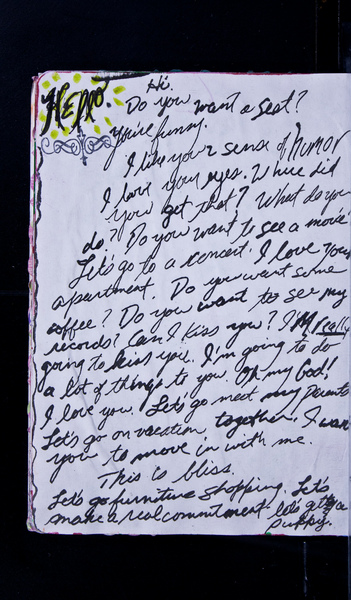 HELLO.
Hi.
Do you want a seat?
You're funny.
I like your sense of humor
I love your eyes. Where did
you get that? What do you
do? Do you want to see a movie?
Let's go to a concert. I love your
apartment. Do you want some
coffee? Do you want to see my
records? Can I kiss you? I'm really
going to kiss you. I'm going to do
a lot of things to you. Oh my God!
I love you. Let's go meet my parents
Let's go on vacation together. I want
you to move in with me.
This is bliss.
Let's go furniture shopping. Let's
make a real commitment. Let's get a
puppy.